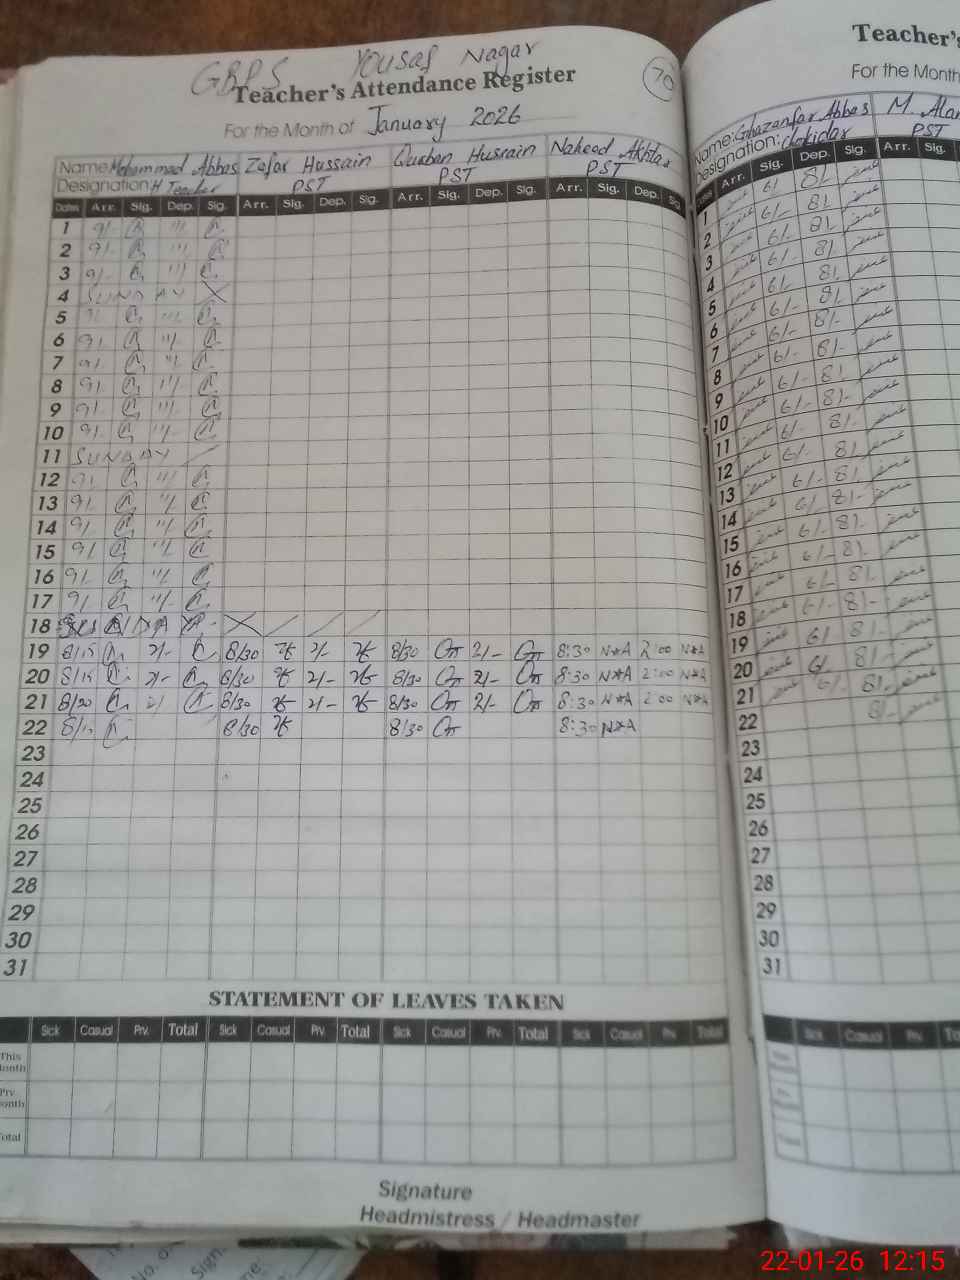 GBPS Yousaf Nagar
Teacher's Attendance Register
70
For the Month of January 2026
Name Mohammad Abbas Zafar Hussain Qurban Husrain Naheed Akhtar
Designation H Teacher PST PST PST
Dates Arr. Sig. Dep. Sig. Arr. Sig. Dep. Sig. Arr. Sig. Dep. Sig. Arr. Sig. Dep. Sig
1 9/-
2 9/-
3 9/-
4 SUNDAY
5 9/-
6 9/-
7 9/-
8 9/-
9 9/-
10 9/-
11 SUNDAY
12 9/-
13 9/-
14 9/-
15 9/-
16 9/-
17 9/-
18
19 8/15 2/- 8/30 2/- 8/30 2/- 8:30 N*A 2:00 N*A
20 8/15 2/- 8/30 2/- 8/30 2/- 8:30 N*A 2:00 N*A
21 8/20 2/ 8/30 2/- 8/30 2/- 8:30 N*A 2:00 N*A
22 8/15 8/30 8/30 8:30 N*A
23
24
25
26
27
28
29
30
31
STATEMENT OF LEAVES TAKEN
Sick Casual Prv. Total Sick Casual Prv. Total Sick Casual Prv. Total Sick Casual Prv. Total
This
onth
Prv.
onth
otal
Signature
Headmistress / Headmaster
Teacher's
For the Month
Name: Ghazanfar Abbas M. Alam
Designation: Chokidar PST
Arr. Sig. Dep. Sig. Arr. Sig.
6/- 8/-
1 6/- 8/-
2 6/- 8/-
3 6/- 8/-
4 6/- 8/-
5 6/- 8/-
6 6/- 8/-
7 6/- 8/-
8 6/- 8/-
9 6/- 8/-
10 6/- 8/-
11 6/- 8/-
12 6/- 8/-
13 6/- 8/-
14 6/- 8/-
15 6/- 8/-
16 6/- 8/-
17 6/- 8/-
18 6/- 8/-
19 6/ 8/-
20 6/- 8/-
21 6/- 8/-
22 8/-
23
24
25
26
27
28
29
30
31
Sick Casual Prv. To
No. of
Sign.
22-01-26 12:15